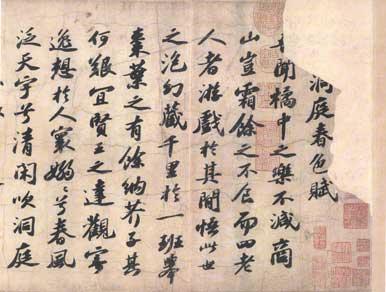 洞庭春色賦
聞橘中之樂不減商
山豈霜餘之不食而四老
人者游戲於其間悟此世
之泡幻藏千里於一班舉
棗葉之有餘納芥子其
何艱宜賢王之達觀寄
逸想於人寰嫋〻兮春風
泛天宇兮清閑吹洞庭